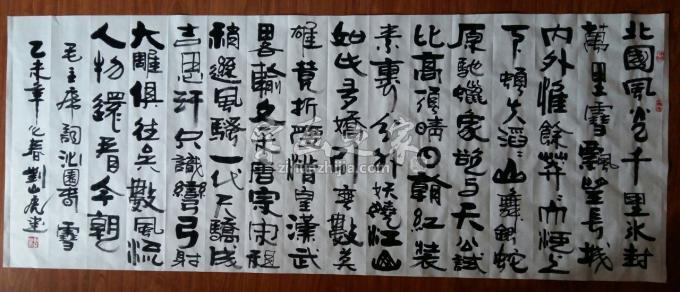 北國風光千里冰封
萬里雪飄望長城
内外惟餘莽〻河上
下頓失滔〻山舞銀蛇
原馳蠟象欲與天公試
比高須晴日看紅裝
素裹分外妖嬈江山
如此多嬌引無數英
雄競折腰惜秦皇漢武
畧輸文采唐宗宋祖
稍遜風騷一代天驕成
吉思汗只識彎弓射
大雕俱往矣數風流
人物還看今朝
毛主席詞沁園春 雪
乙未年之春劉山虎書
字画之家
zihuazhijia.com